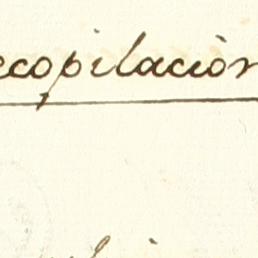 ecopilaciòn